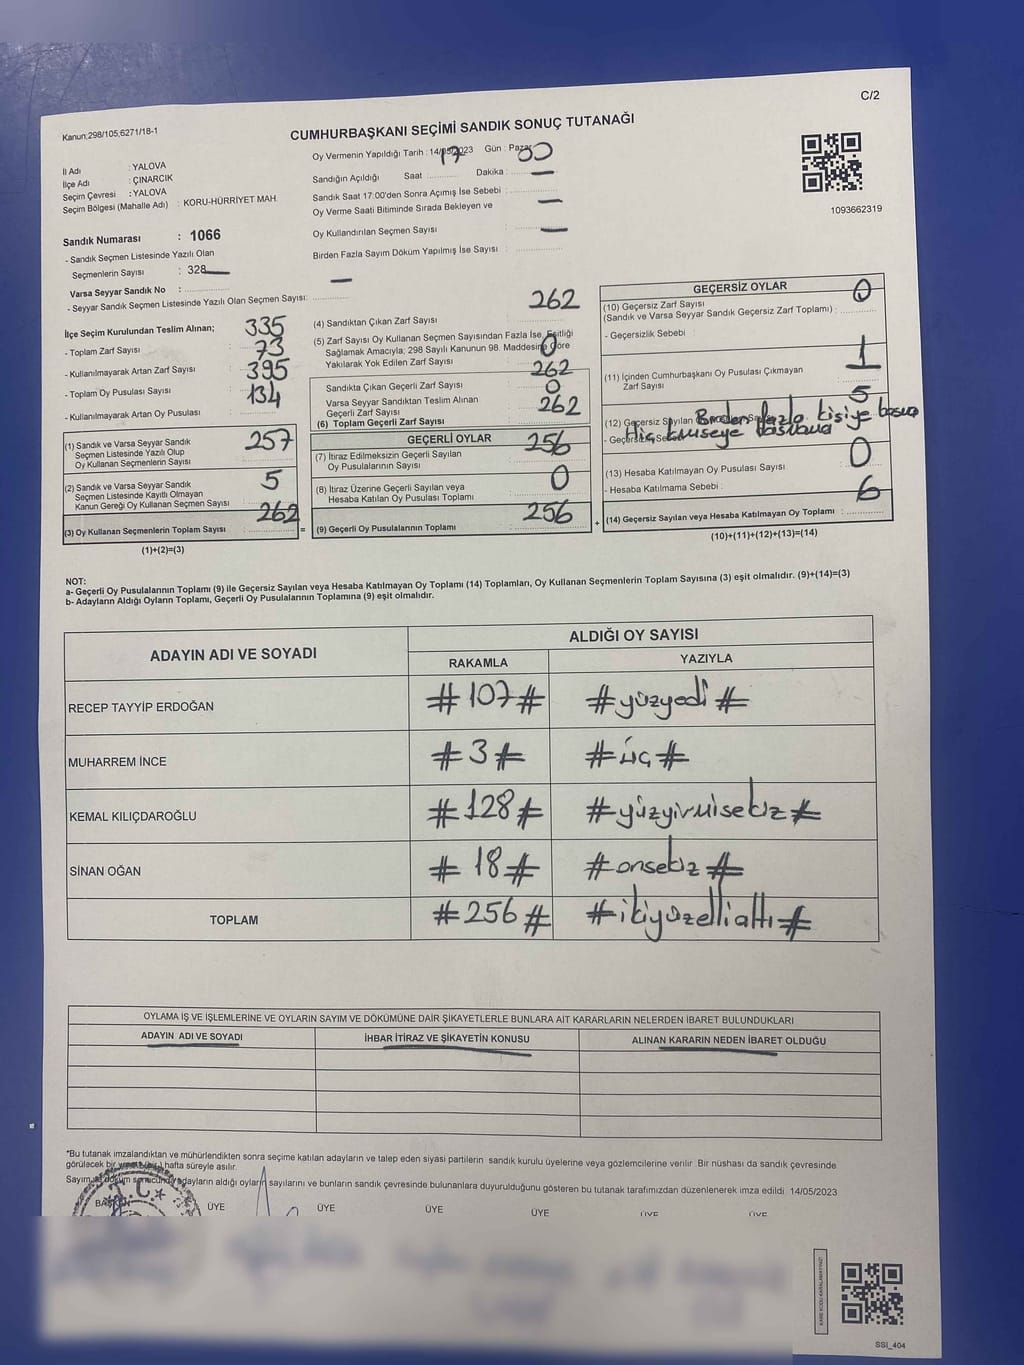 C/2
Kanun;298/105;6271/18-1
CUMHURBAŞKANI SEÇİMİ SANDIK SONUÇ TUTANAĞI
İl Adı : YALOVA
İlçe Adı : ÇINARCIK
Seçim Çevresi : YALOVA
Seçim Bölgesi (Mahalle Adı) : KORU-HÜRRİYET MAH.
Sandık Numarası : 1066
- Sandık Seçmen Listesinde Yazılı Olan
Seçmenlerin Sayısı : 328
Varsa Seyyar Sandık No :
- Seyyar Sandık Seçmen Listesinde Yazılı Olan Seçmen Sayısı: —
Oy Vermenin Yapıldığı Tarih : 14/05/2023 Gün : Pazar
Sandığın Açıldığı Saat : 17 Dakika : 00
Sandık Saat 17:00'den Sonra Açımış İse Sebebi : —
Oy Verme Saati Bitiminde Sırada Bekleyen ve
Oy Kullandırılan Seçmen Sayısı : —
Birden Fazla Sayım Döküm Yapılmış İse Sayısı : —
1093662319
İlçe Seçim Kurulundan Teslim Alınan;
- Toplam Zarf Sayısı : 335
- Kullanılmayarak Artan Zarf Sayısı : 73
- Toplam Oy Pusulası Sayısı : 395
- Kullanılmayarak Artan Oy Pusulası : 134
(1) Sandık ve Varsa Seyyar Sandık
Seçmen Listesinde Yazılı Olup
Oy Kullanan Seçmenlerin Sayısı : 257
(2) Sandık ve Varsa Seyyar Sandık
Seçmen Listesinde Kayıtlı Olmayan
Kanun Gereği Oy Kullanan Seçmen Sayısı : 5
(3) Oy Kullanan Seçmenlerin Toplam Sayısı : 262
(1)+(2)=(3)
=
(4) Sandıktan Çıkan Zarf Sayısı : 262
(5) Zarf Sayısı Oy Kullanan Seçmen Sayısından Fazla İse, Eşitliği
Sağlamak Amacıyla; 298 Sayılı Kanunun 98. Maddesine Göre
Yakılarak Yok Edilen Zarf Sayısı : 0
Sandıkta Çıkan Geçerli Zarf Sayısı : 262
Varsa Seyyar Sandıktan Teslim Alınan
Geçerli Zarf Sayısı : 0
(6) Toplam Geçerli Zarf Sayısı : 262
GEÇERLİ OYLAR
(7) İtiraz Edilmeksizin Geçerli Sayılan
Oy Pusulalarının Sayısı : 256
(8) İtiraz Üzerine Geçerli Sayılan veya
Hesaba Katılan Oy Pusulası Toplamı : 0
(9) Geçerli Oy Pusulalarının Toplamı : 256
+
GEÇERSİZ OYLAR
(10) Geçersiz Zarf Sayısı
(Sandık ve Varsa Seyyar Sandık Geçersiz Zarf Toplamı) : 0
- Geçersizlik Sebebi :
(11) İçinden Cumhurbaşkanı Oy Pusulası Çıkmayan
Zarf Sayısı : 1
(12) Geçersiz Sayılan : 5
Birden fazla kişiye basma
Hiç kimseye basmama
(13) Hesaba Katılmayan Oy Pusulası Sayısı : 0
- Hesaba Katılmama Sebebi :
(14) Geçersiz Sayılan veya Hesaba Katılmayan Oy Toplamı : 6
(10)+(11)+(12)+(13)=(14)
NOT:
a- Geçerli Oy Pusulalarının Toplamı (9) ile Geçersiz Sayılan veya Hesaba Katılmayan Oy Toplamı (14) Toplamları, Oy Kullanan Seçmenlerin Toplam Sayısına (3) eşit olmalıdır. (9)+(14)=(3)
b- Adayların Aldığı Oyların Toplamı, Geçerli Oy Pusulalarının Toplamına (9) eşit olmalıdır.
ADAYIN ADI VE SOYADI
ALDIĞI OY SAYISI
RAKAMLA YAZIYLA
RECEP TAYYİP ERDOĞAN #107# #yüzyedi#
MUHARREM İNCE #3# #üç#
KEMAL KILIÇDAROĞLU #128# #yüzyirmisekiz#
SİNAN OĞAN #18# #onsekiz#
TOPLAM #256# #ikiyüzellialtı#
OYLAMA İŞ VE İŞLEMLERİNE VE OYLARIN SAYIM VE DÖKÜMÜNE DAİR ŞİKAYETLERLE BUNLARA AİT KARARLARIN NELERDEN İBARET BULUNDUKLARI
ADAYIN ADI VE SOYADI İHBAR İTİRAZ VE ŞİKAYETİN KONUSU ALINAN KARARIN NEDEN İBARET OLDUĞU
*Bu tutanak imzalandıktan ve mühürlendikten sonra seçime katılan adayların ve talep eden siyasi partilerin sandık kurulu üyelerine veya gözlemcilerine verilir. Bir nüshası da sandık çevresinde
görülecek bir hafta süreyle asılır.
Sayım ve döküm sonucunda adayların aldığı oyların sayılarını ve bunların sandık çevresinde bulunanlara duyurulduğunu gösteren bu tutanak tarafımızdan düzenlenerek imza edildi. 14/05/2023
T.C.
BAŞKAN ÜYE ÜYE ÜYE ÜYE ÜYE ÜYE
KARE KODU KARALAMAYINIZ!
SSI_404